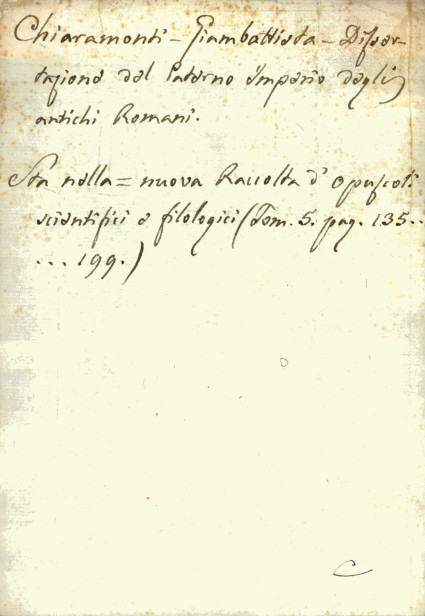 Chiaramonti - Giambattista - Disser-
tazione del Paterno Imperio degli
antichi Romani.
Sta nella = nuova Raccolta d' Opuscoli
scientifici e filologici (Tom. 5. pag. 135..
... 199.)
C